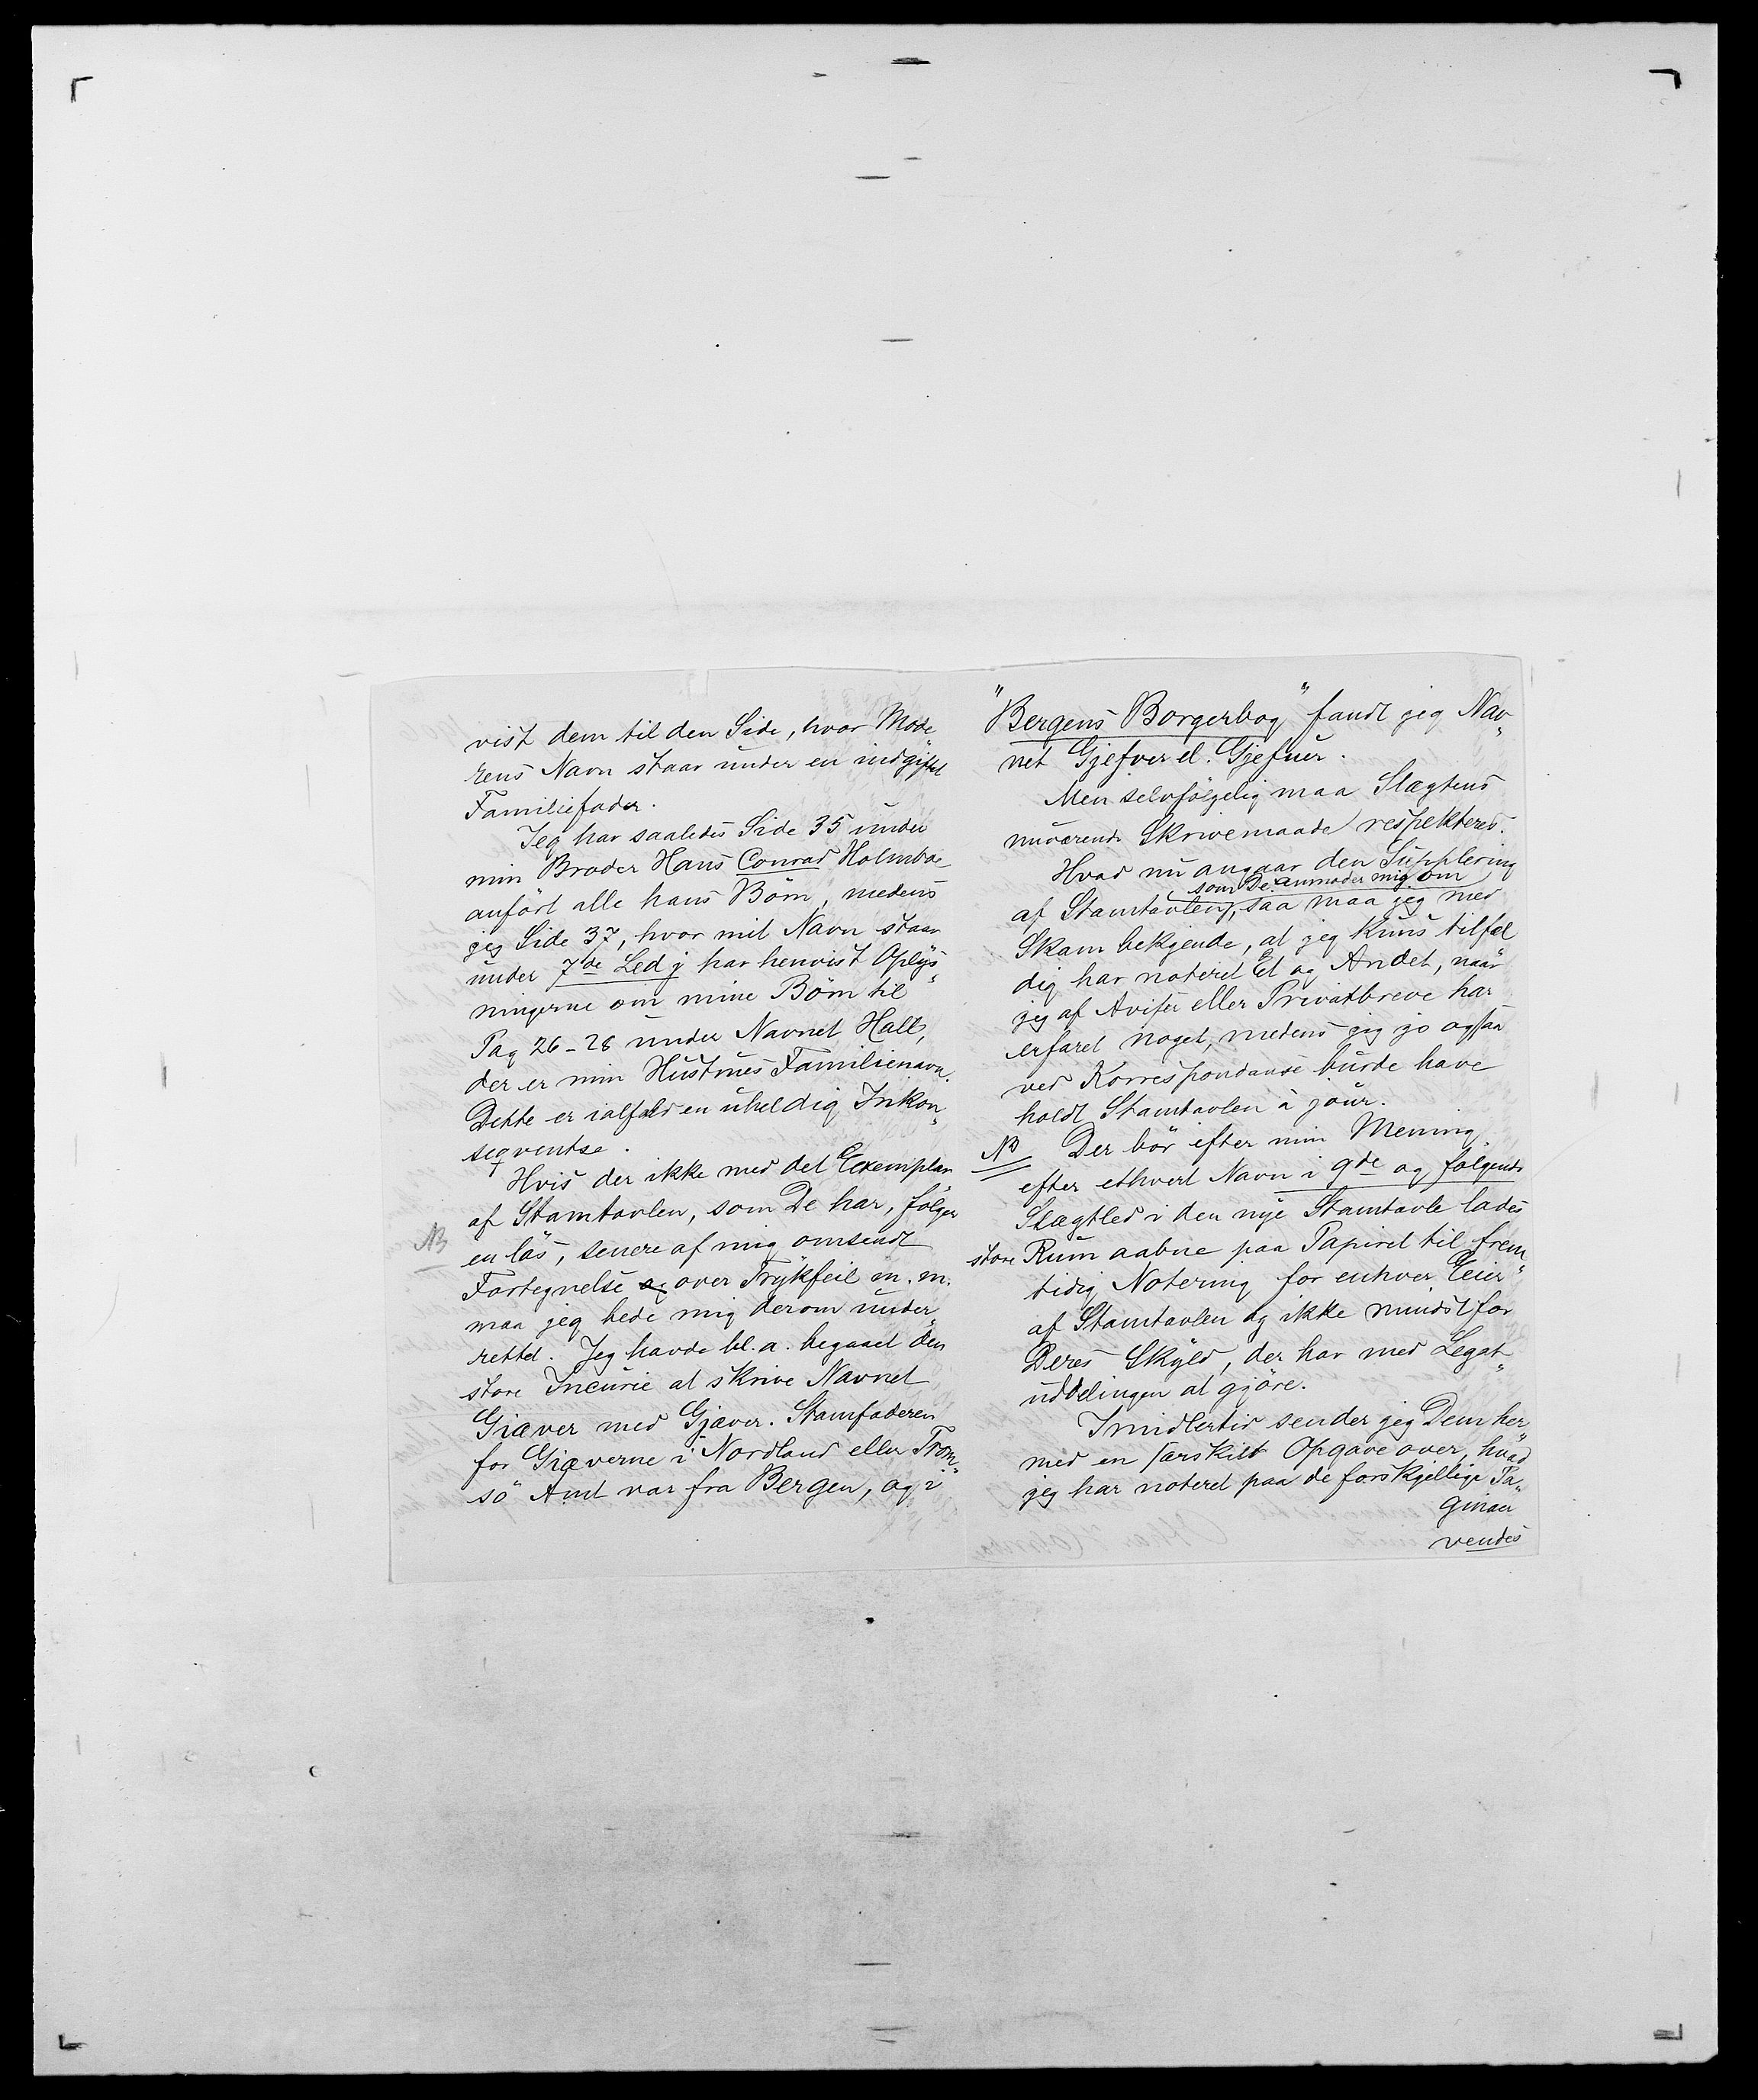 vist dem til den Side, hvor Mode„
rens Navn staar under en indgiftet
Familiefader.
Jeg har saaledes Side 35 under
min Broder Hans Conrad Holmboe
anført alle hans Börn, medens
jeg Side 37, hvor mit Navn staar
under 7de Led j har henvist Oplys„
ningerne om mine Börn til
Pag 26-28 under Navnet Hall,
der er min Hustrues Familienavn.
Dette er ialfald en uheldig Inkon„
seqventse.
Hvis der ikke med det Exemplar
af Stamtavlen, som De har, følger
NB en lös, senere af mig omsendt
Fortegnelse over Trykfeil m. m.
maa jeg bede mig derom under„
rettet. Jeg havde bl. a. begaaet den
store Incurie at skrive Navnet
Giæver med Gjæver. Stamfaderen
for Giæverne i Nordland eller Trom„
sö Amt var fra Bergen, og i
"Bergens Borgerbog" fandt jeg Nav„
net Gjefver el. Gjefuer.
Men selvfölgelig maa Slægtens
nuværende Skrivemaade respekteres.
Hvad nu angaar den Supplering
som De anmoder mig om
af Stamtavlen, saa maa jeg med
Skam bekjende, at jeg kuns tilfæl
dig har noteret Et og Andet, naar
jeg af Aviser eller Privatbreve har
erfaret noget, medens jeg jo ogsaa
ved Korrespondanse burde have
holdt Stamtavlen à jour.
NB Der bör efter min Mening
efter ethvert Navn i 9de og følgende
Slægtled i den nye Stamtavle lades
store Rum aabne paa Papiret til frem„
tidig Notering for enhver Eier
af Stamtavlen og ikke mindst for
Deres Skyld, der har med Legat„
uddelingen at gjöre.
Imidlertid sender jeg Dem her„
med en særskilt Opgave over, hvad
jeg har noteret paa de forskjellige Pa„
ginaer
vendes